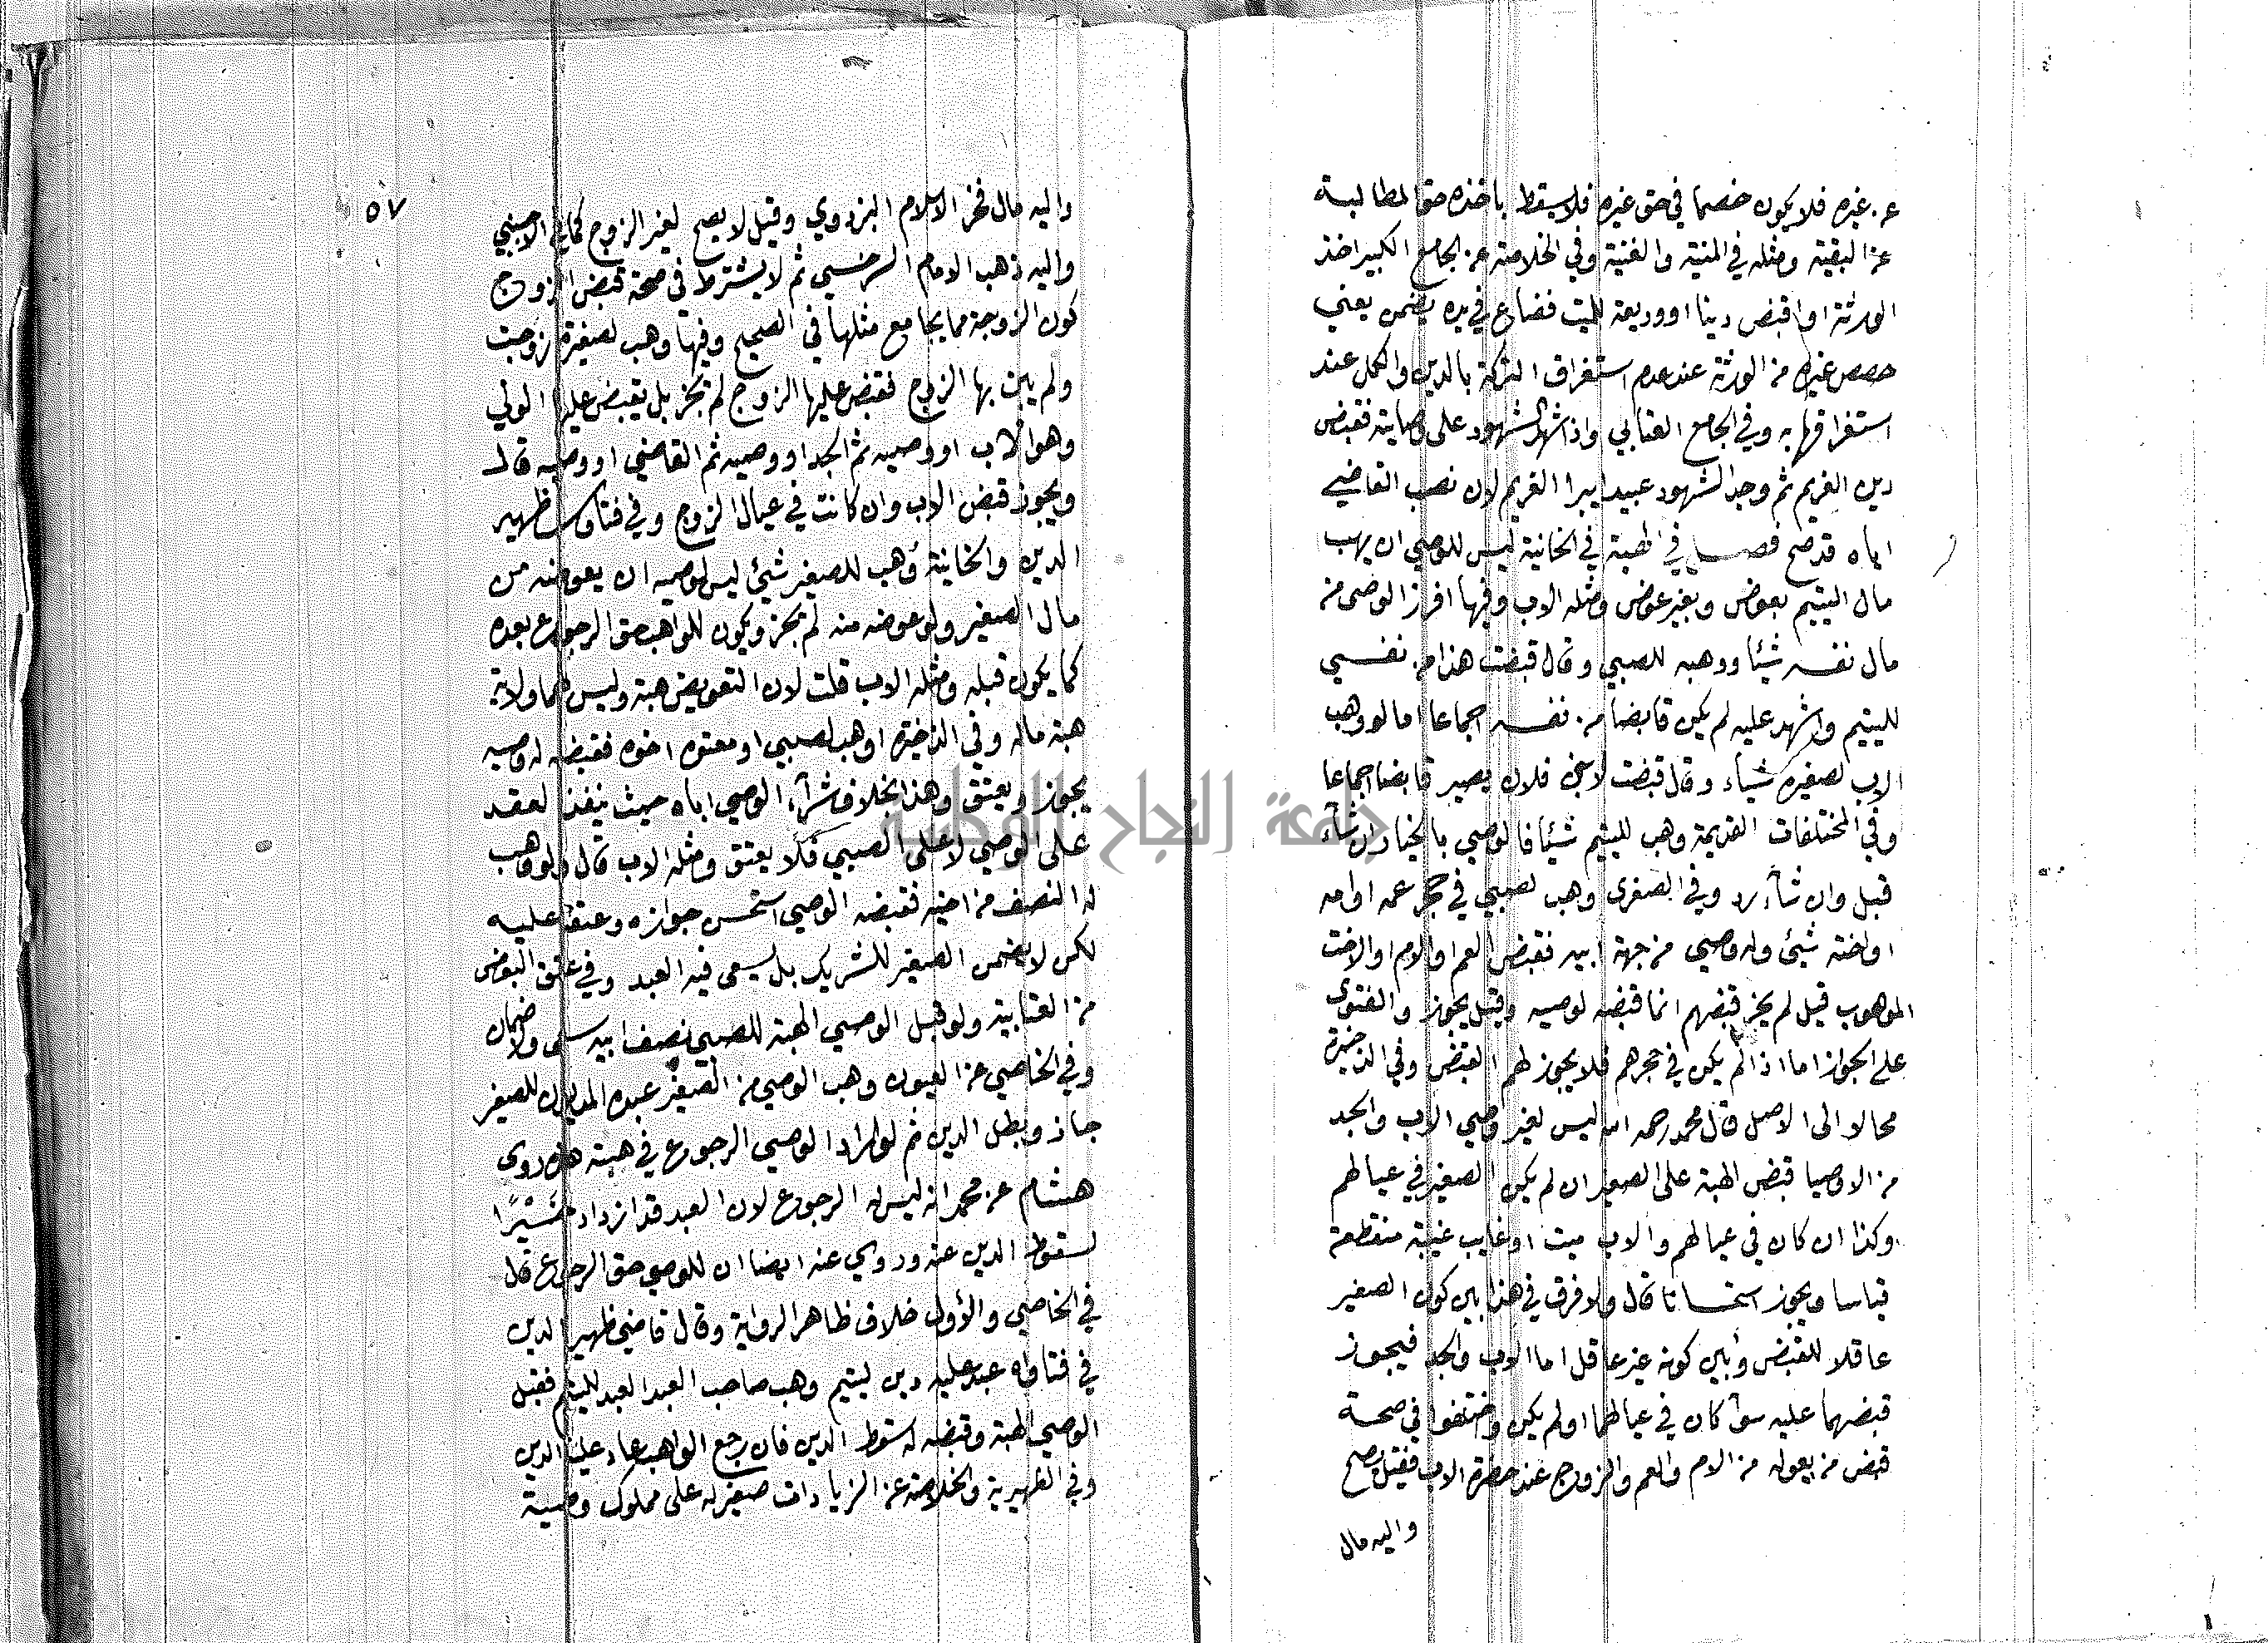 عن غيره فلا يكون خصما في حق غيره فلا يسقط باخذه حق المطالبة
عن البقية ومثله في المنية والغنية وفي الخلاصة عن الجامع الكبير اخذ
الورثة اوا قبض دينا او وديعة للميت فضاع في يده يضمن يعني
حصص غيره من الورثة عند عدم استغراق التركة بالدين والكل عند
استغراقها به وفي الجامع العتابي واذا شهد الشهود على وصايته فقبض
دين الغريم ثم وجد الشهود عبيدا يبرا الغريم لان نصب القاضي
اياه قد صح فصل في الهبة في الخانية ليس للوصي ان يهب
مال اليتيم بعوض وبغير عوض ومثله الاب وفيها افرز الوصي من
مال نفسه شيئا ووهبه للصبي وقال قبضت هذا من نفسي
لليتيم واشهد عليه لم يكن قابضا من نفسه اجماعا اما لو وهب
الاب لصغيره شياء وقال قبضت لابني فلان يصير قابضا اجماعا
وفي المختلفات القديمة وهب لليتيم شيئا فالوصي بالخيار ان شآء
قبل وان شآء رد وفي الصغرى وهب لصبي في حجر عمه او امه
او اخته شئ وله وصي من جهة ابيه فقبض العم او الام او الاخت
الموهوب قيل لم يجز قبضهم انما قبضه لوصيه وقيل يجوز والفتوى
على الجواز اما اذا لم يكن في حجرهم فلا يجوز لهم القبض وفي الذخيرة
محالا الى الاصل قال محمد رحمه الله ليس لغير وصي الاب والجد
من الاوصيا قبض الهبة على الصغير ان لم يكن الصغير في عيالهم
وكذا ان كان في عيالهم والاب ميت او غايب غيبة منقطعة
قياسا ويجوز استحسانا قال ولا فرق في هذا بين كون الصغير
عاقلا للقبض وبين كونه غير عاقل اما الاب والجد فيجوز
قبضهما عليه سوآ كان في عيالهما او لم يكن واختلفوا في صحة
قبض من يعوله من الام والعم والزوج عند حضرة الاب فقيل يصح
واليه مال
٥٧
واليه مال فخر الاسلام البزدوي وقيل لا يصح لغير الزوج كما في الاجنبي
واليه ذهب الامام السرخسي ثم لا يشترط في صحة قبض الزوج
كون الزوجة مما يجامع مثلها في الصحيح وفيها وهب لصغيرة زوجت
ولم يبن بها الزوج فقبض عليها الزوج لم يجز بل يقبض عليها الولي
وهو الاب او وصيه ثم الجد او وصيه ثم القاضي او وصيه قال
ويجوز قبض الاب وان كانت في عيال الزوج وفي فتاوى ظهير
الدين والخانية وهب للصغير شئ ليس لوصيه ان يعوضه من
مال الصغير ولو عوضه منه لم يجز ويكون للواهب حق الرجوع بعده
كما يكون قبله ومثله الاب قلت لان التعويض هبة وليس لهما ولاية
هبة ماله وفي الذخيرة اوهب لصبي او معتوه اخوه فقبضه له وصيه
يجوز ويعتق وهذا بخلاف شرآء الوصي اياه حيث ينفذ العقد
على الوصي لا على الصبي فلا يعتق ومثله الاب قال ولو وهب
له النصف من اخيه فقبضه الوصي استحسن جوازه وعتقا عليه
لكن لا يضمن الصغير للشريك بل يسعى فيه العبد وفي عتق البعض
من العتابية ولو قبل الوصي الهبة للصبي نصف ابيه سعى ولا ضمان
وفي الخاصي عن العيون وهب الوصي من الصغير عبده المديون للصغير
جاز وبطل الدين ثم لو اراد الوصي الرجوع في هبة هذه روى
هشام عن محمد انه ليس له الرجوع لان العبد قد ازداد خيرا
لسقوط الدين عنه وروي عنه ايضا ان للوصي حق الرجوع قال
في الخاصي والأول خلاف ظاهر الرواية وقال قاضي ظهير الدين
في فتاواه عبد عليه دين ليتيم وهب صاحب العبد العبد لليتيم فقبل
الوصي الهبة وقبضه له سقط الدين فان رجع الواهب عاد عليه الدين
وفي الظهيرية والخلاصة عن الزيادات صغير له على مملوك وصية
جامعة النجاح الوطنية